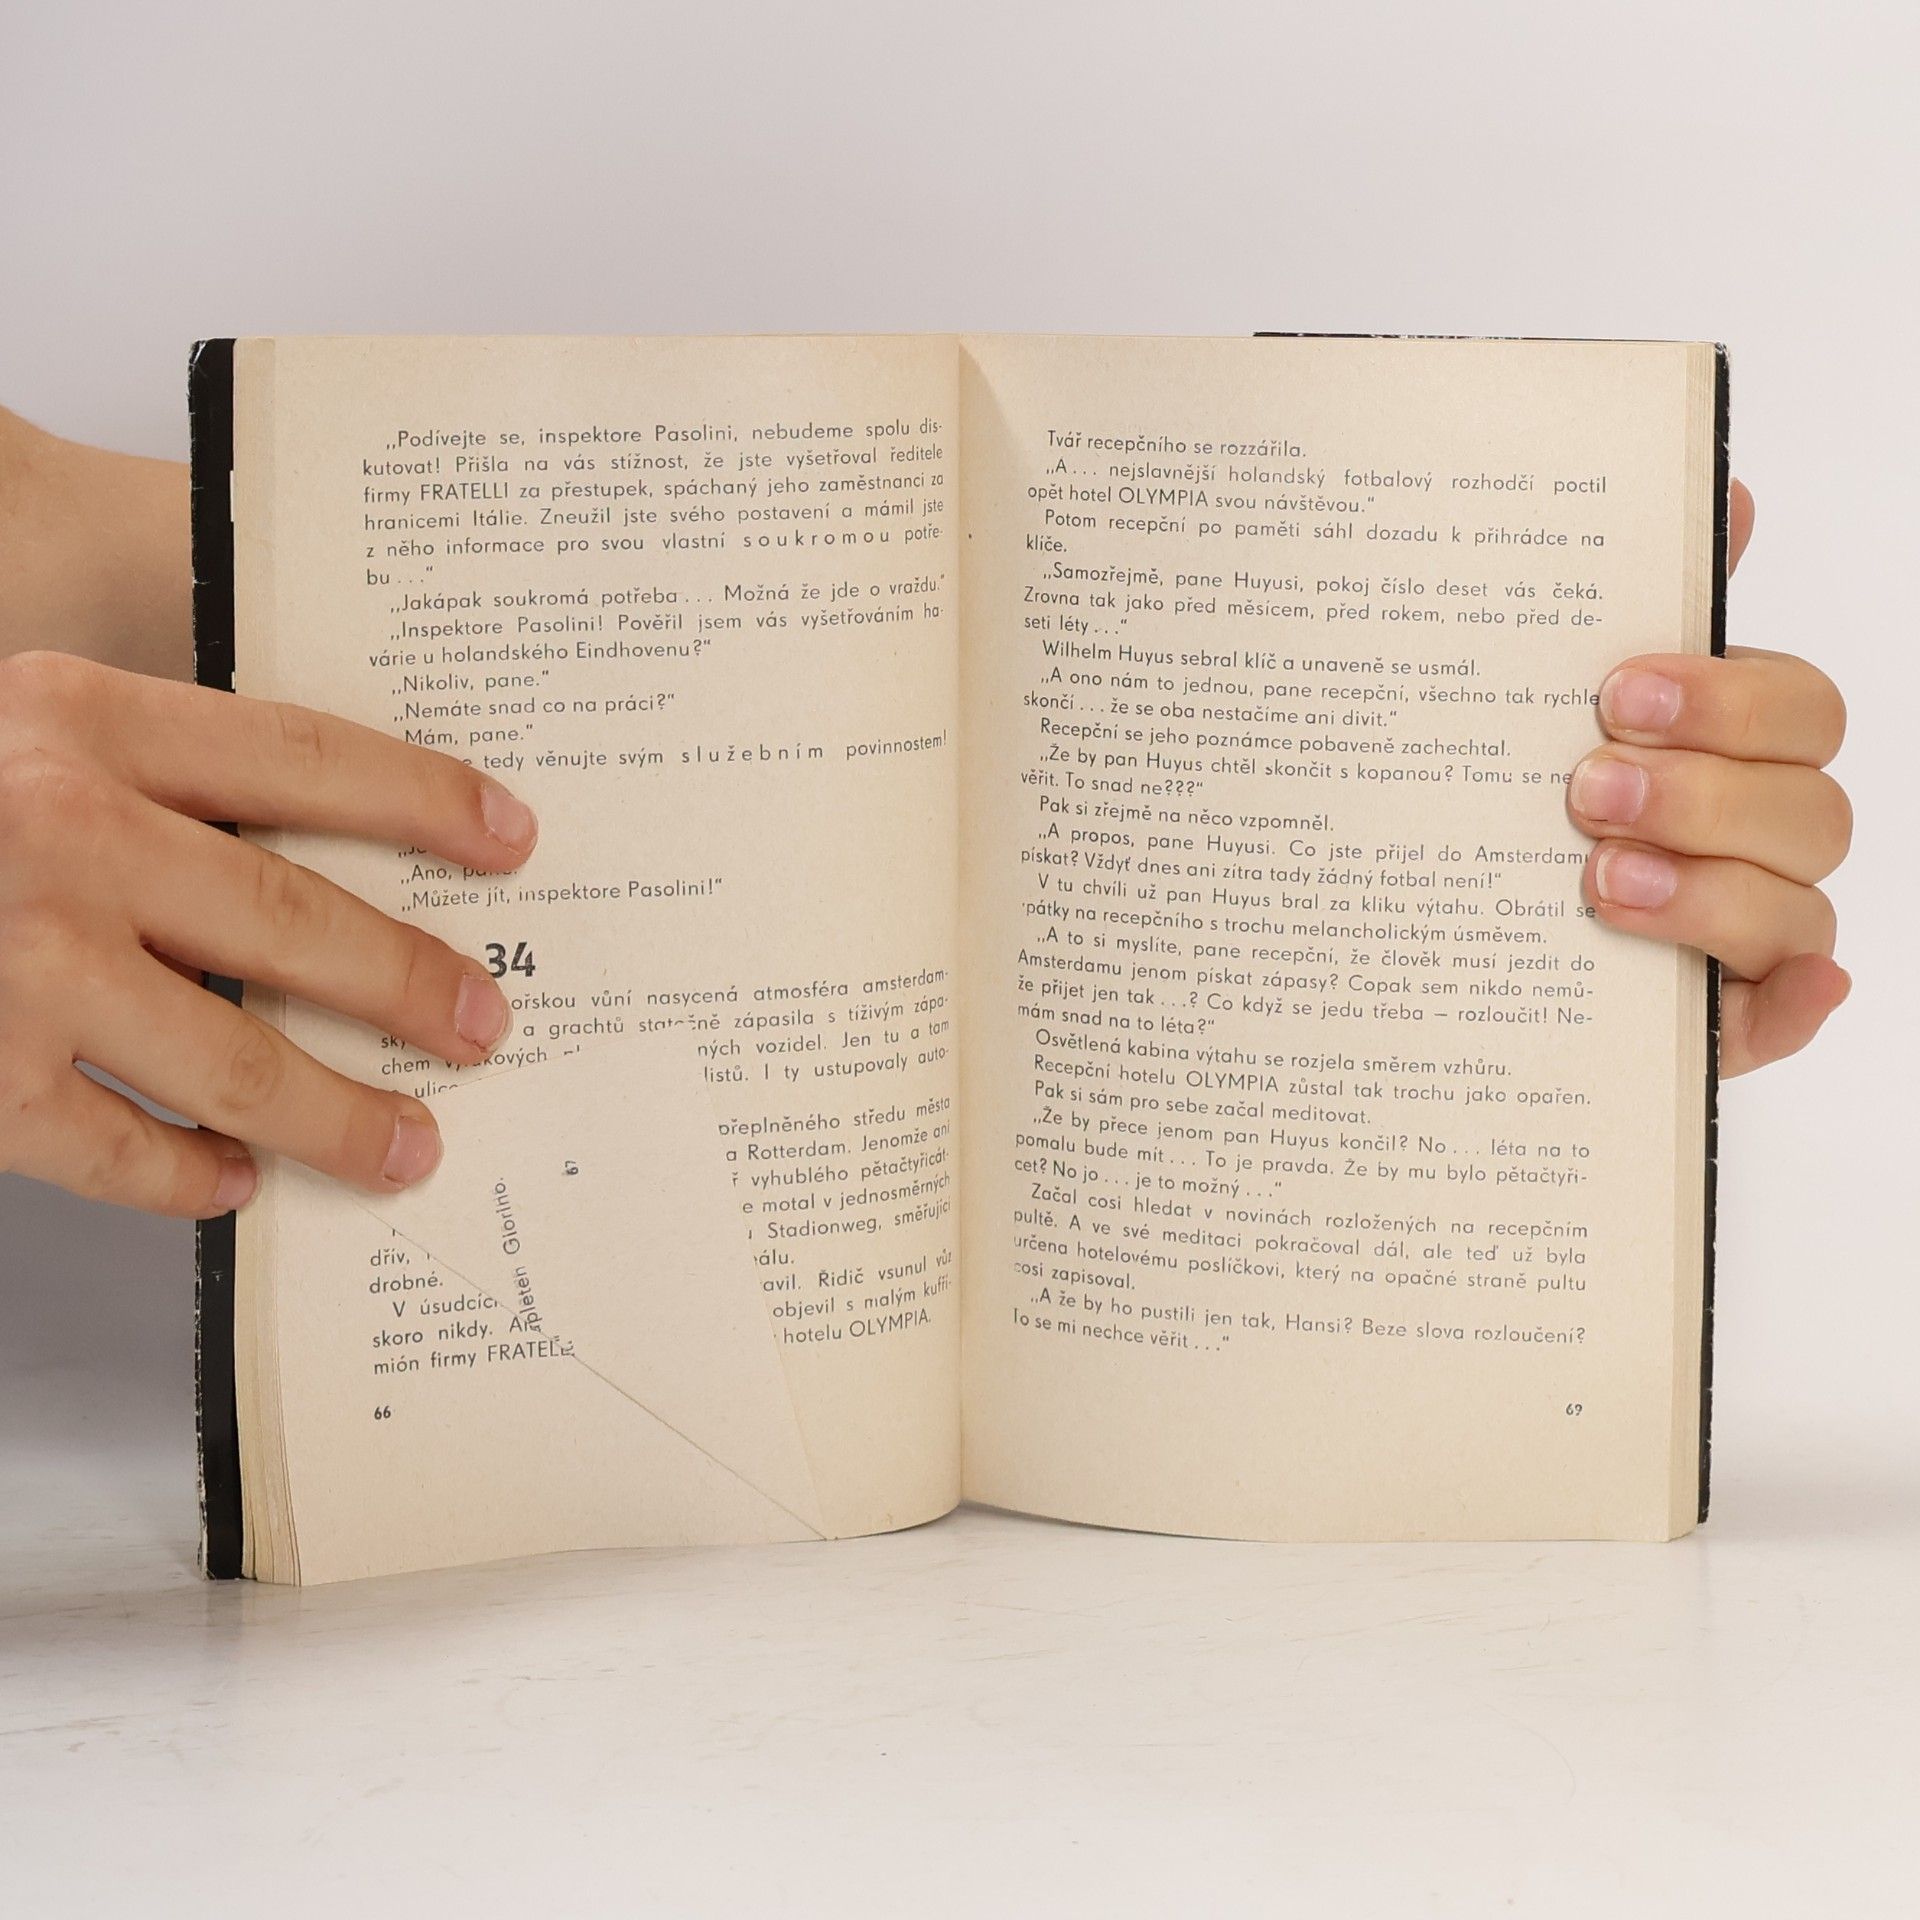 „Podívejte se, inspektore Pasolini, nebudeme spolu dis-
kutovat! Přišla na vás stížnost, že jste vyšetřoval ředitele
firmy FRATELLI za přestupek, spáchaný jeho zaměstnanci za
hranicemi Itálie. Zneužil jste svého postavení a mámil jste
z něho informace pro svou vlastní soukromou potře-
bu . . .“
„Jakápak soukromá potřeba . . . Možná že jde o vraždu.“
„Inspektore Pasolini! Pověřil jsem vás vyšetřováním ha-
várie u holandského Eindhovenu?“
„Nikoliv, pane.“
„Nemáte snad co na práci?“
Mám, pane.“
tedy věnujte svým služebním povinnostem!
„Ano,
„Můžete jít, inspektore Pasolini!“
34
ořskou vůní nasycená atmosféra amsterdam-
a grachtů statečně zápasila s tíživým zápa-
chem ných vozidel. Jen tu a tam
listů. I ty ustupovaly auto-
přeplněného středu města
a Rotterdam. Jenomže ani
ř vyhublého pětačtyřicát-
e motal v jednosměrných
Stadionweg, směřující
álu.
dřív, avil. Řidič vsunul vůz
drobné. objevil s malým kufří-
hotelu OLYMPIA.
V úsudcích
skoro nikdy.
mión firmy FRATELL
66
pleten Giorino.
67
Tvář recepčního se rozzářila.
„A . . . nejslavnější holandský fotbalový rozhodčí poctil
opět hotel OLYMPIA svou návštěvou.“
Potom recepční po paměti sáhl dozadu k přihrádce na
klíče.
„Samozřejmě, pane Huyusi, pokoj číslo deset vás čeká.
Zrovna tak jako před měsícem, před rokem, nebo před de-
seti léty . . .“
Wilhelm Huyus sebral klíč a unaveně se usmál.
„A ono nám to jednou, pane recepční, všechno tak rychle
skončí . . . že se oba nestačíme ani divit.“
Recepční se jeho poznámce pobaveně zachechtal.
„Že by pan Huyus chtěl skončit s kopanou? Tomu se ne
věřit. To snad ne???“
Pak si zřejmě na něco vzpomněl.
„A propos, pane Huyusi. Co jste přijel do Amsterdamu
pískat? Vždyť dnes ani zítra tady žádný fotbal není!“
V tu chvíli už pan Huyus bral za kliku výtahu. Obrátil se
pátky na recepčního s trochu melancholickým úsměvem.
„A to si myslíte, pane recepční, že člověk musí jezdit do
Amsterdamu jenom pískat zápasy? Copak sem nikdo nemů-
že přijet jen tak . . .? Co když se jedu třeba – rozloučit! Ne-
mám snad na to léta?“
Osvětlená kabina výtahu se rozjela směrem vzhůru.
Recepční hotelu OLYMPIA zůstal tak trochu jako opařen.
Pak si sám pro sebe začal meditovat.
„Že by přece jenom pan Huyus končil? No . . . léta na to
pomalu bude mít . . . To je pravda. Že by mu bylo pětačtyři-
cet? No jo . . . je to možný . . .“
Začal cosi hledat v novinách rozložených na recepčním
pultě. A ve své meditaci pokračoval dál, ale teď už byla
určena hotelovému poslíčkovi, který na opačné straně pultu
cosi zapisoval.
„A že by ho pustili jen tak, Hansi? Beze slova rozloučení?
To se mi nechce věřit . . .“
69